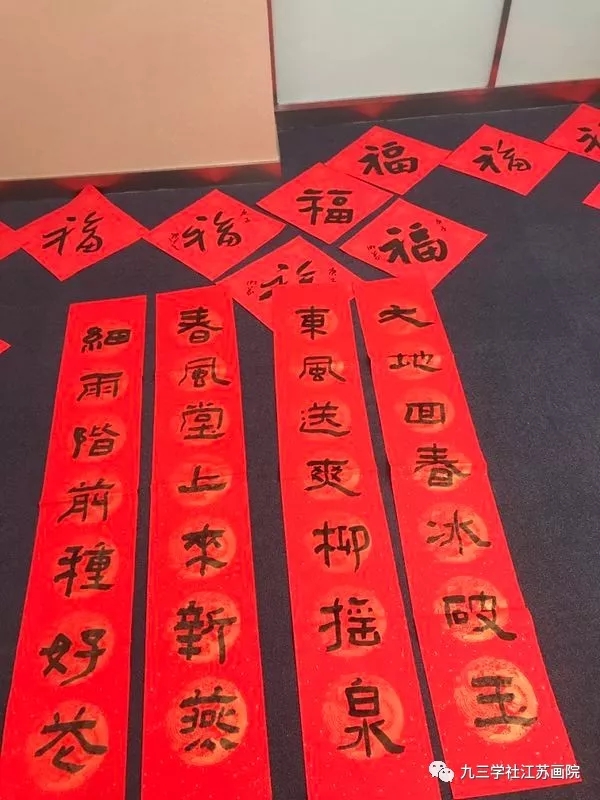 福
福
福
福
福
福
福
大地回春冰破玉
東風送爽柳摇泉
春風堂上來新燕
細雨階前種好花
九三学社江苏画院